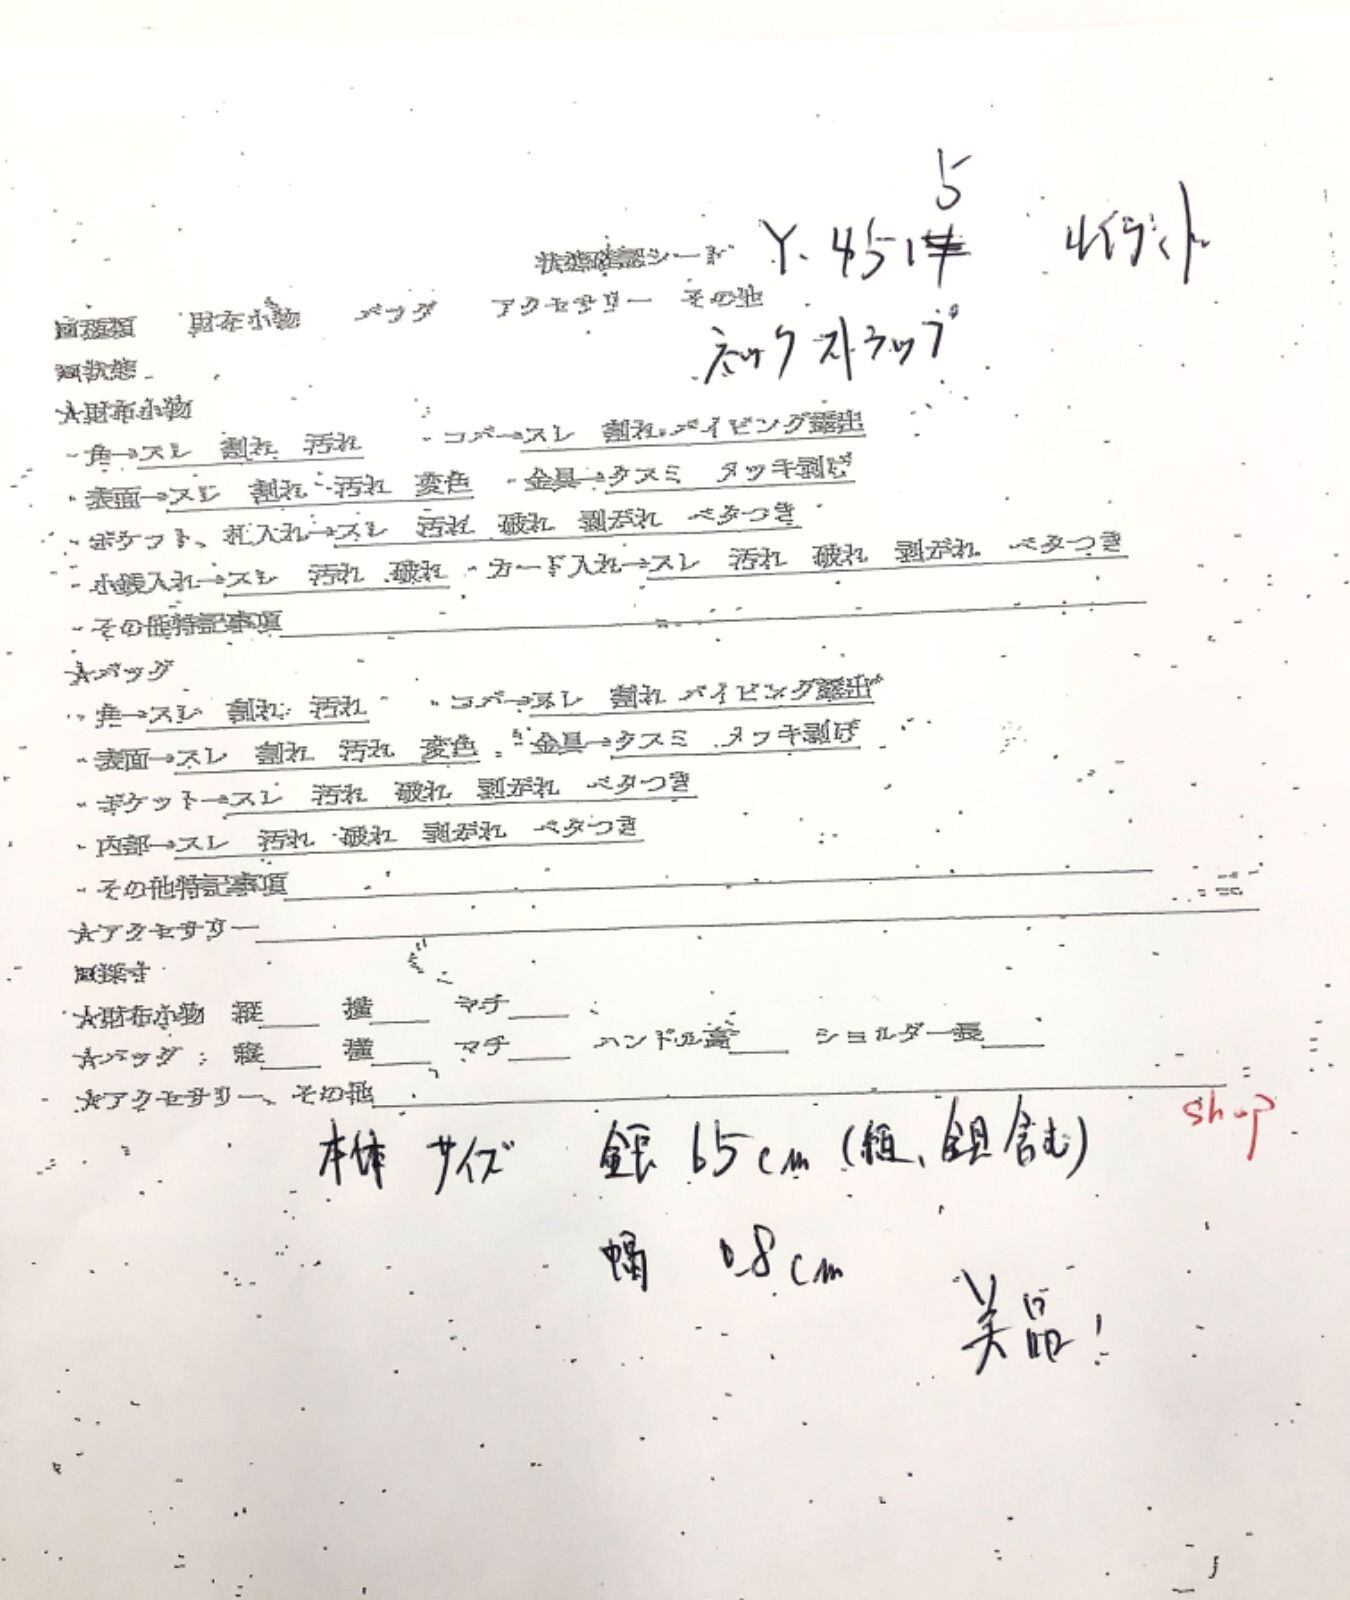 状態確認シート Y. 4515 ルイヴィトン
■種類 財布小物 バッグ アクセサリー その他
ネックストラップ
■状態
★財布小物
・角→スレ 割れ 汚れ ・コバ→スレ 割れ パイピング露出
・表面→スレ 割れ 汚れ 変色 ・金具→クスミ メッキ剥げ
・ポケット、札入れ→スレ 汚れ 破れ 剥がれ ベタつき
・小銭入れ→スレ 汚れ 破れ ・カード入れ→スレ 汚れ 破れ 剥がれ ベタつき
・その他特記事項
★バッグ
・角→スレ 割れ 汚れ ・コバ→スレ 割れ パイピング露出
・表面→スレ 割れ 汚れ 変色 ・金具→クスミ メッキ剥げ
・ポケット→スレ 汚れ 破れ 剥がれ ベタつき
・内部→スレ 汚れ 破れ 剥がれ ベタつき
・その他特記事項
★アクセサリー
■採寸
★財布小物 縦 横 マチ
★バッグ: 縦 横 マチ ハンドル高 ショルダー長
★アクセサリー、その他
shop
本体 サイズ 全長 65cm (紐、金具含む)
幅 0.8cm
美品!